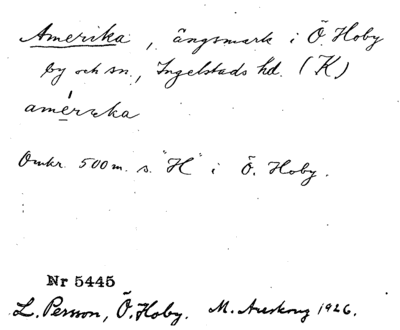 Amerika, ängsmark i Ö. Hoby
by och sn., Ingelstads hd. (K)
amerika
Omkr. 500 m. s. "H" i Ö. Hoby.
Nr 5445
L. Persson, Ö. Hoby. M. 1926.